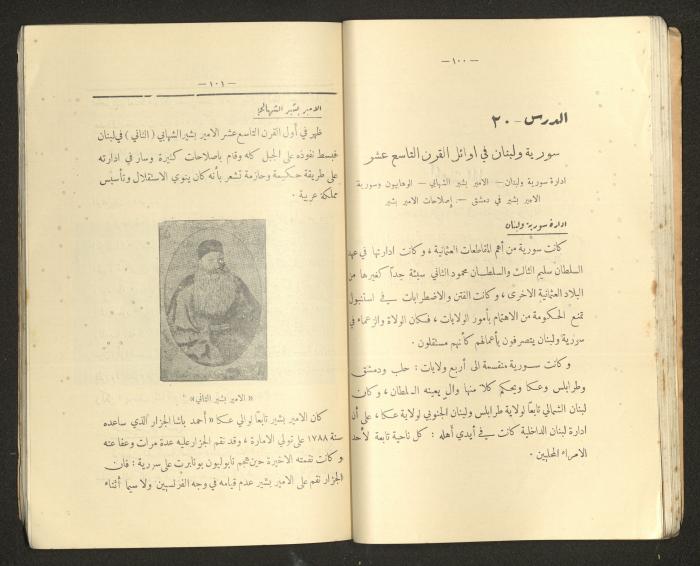 — ١٠٠ —
الدرس - ٢٠
سورية ولبنان في اوائل القرن التاسع عشر
ادارة سورية ولبنان — الامير بشير الشهابي — الوهابيون وسورية
الامير بشير في دمشق — إصلاحات الامير بشير
ادارة سورية ولبنان
كانت سورية من أهم المقاطعات العثمانية ، وكانت ادارتها في عهد
السلطان سليم الثالث والسلطان محمود الثاني سيئة جداً كغيرها من
البلاد العثمانية الاخرى ، وكانت الفتن والاضطرابات في استنبول
تمنع الحكومة من الاهتمام بأمور الولايات ، فكان الولاة والزعماء في
سورية ولبنان يتصرفون بأعمالهم كأنهم مستقلون .
وكانت سورية منقسمة الى أربع ولايات : حلب ودمشق
وطرابلس وعكا ويحكم كلا منها والٍ يعينه السلطان ، وكان
لبنان الشمالي تابعاً لولاية طرابلس ولبنان الجنوبي لولاية عكا ، على أن
ادارة لبنان الداخلية كانت في أيدي أهله : كل ناحية تابعة لأحد
الامراء المحليين .
— ١٠١ —
الامير بشير الشهابي
ظهر في أول القرن التاسع عشر الامير بشير الشهابي ( الثاني ) في لبنان
فبسط نفوذه على الجبل كله وقام باصلاحات كثيرة وسار في ادارته
على طريقة حكيمة وحازمة تشعر بأنه كان ينوي الاستقلال وتأسيس
مملكة عربية .
« الامير بشير الثاني »
كان الامير بشير تابعاً لوالي عكا « أحمد باشا الجزار الذي ساعده
سنة ١٧٨٨ على تولي الامارة ، وقد نقم الجزار عليه عدة مرات وعفا عنه
وكانت نقمته الاخيرة حين هجم نابوليون بونابرت على سورية : فان
الجزار نقم على الامير بشير عدم قيامه في وجه الفرنسيين ولا سيما أثناء